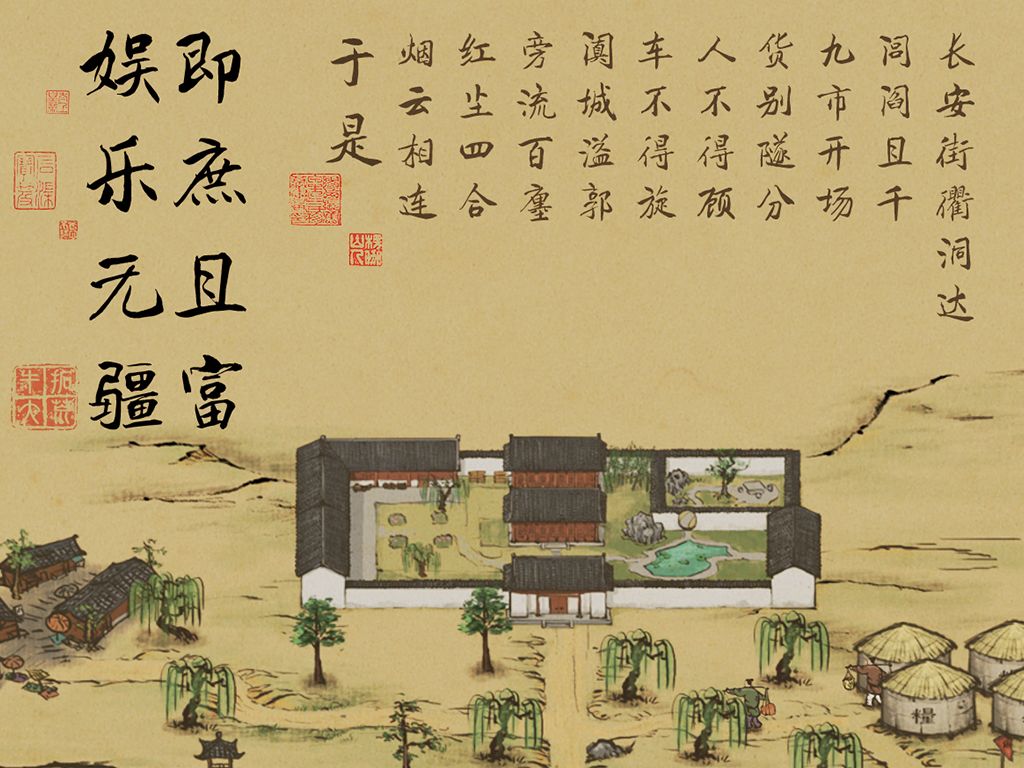 长安街衢洞达
闾阎且千
九市开场
货别隧分
人不得顾
车不得旋
阗城溢郭
旁流百廛
红尘四合
烟云相连
于是
即庶且富
娱乐无疆
糧